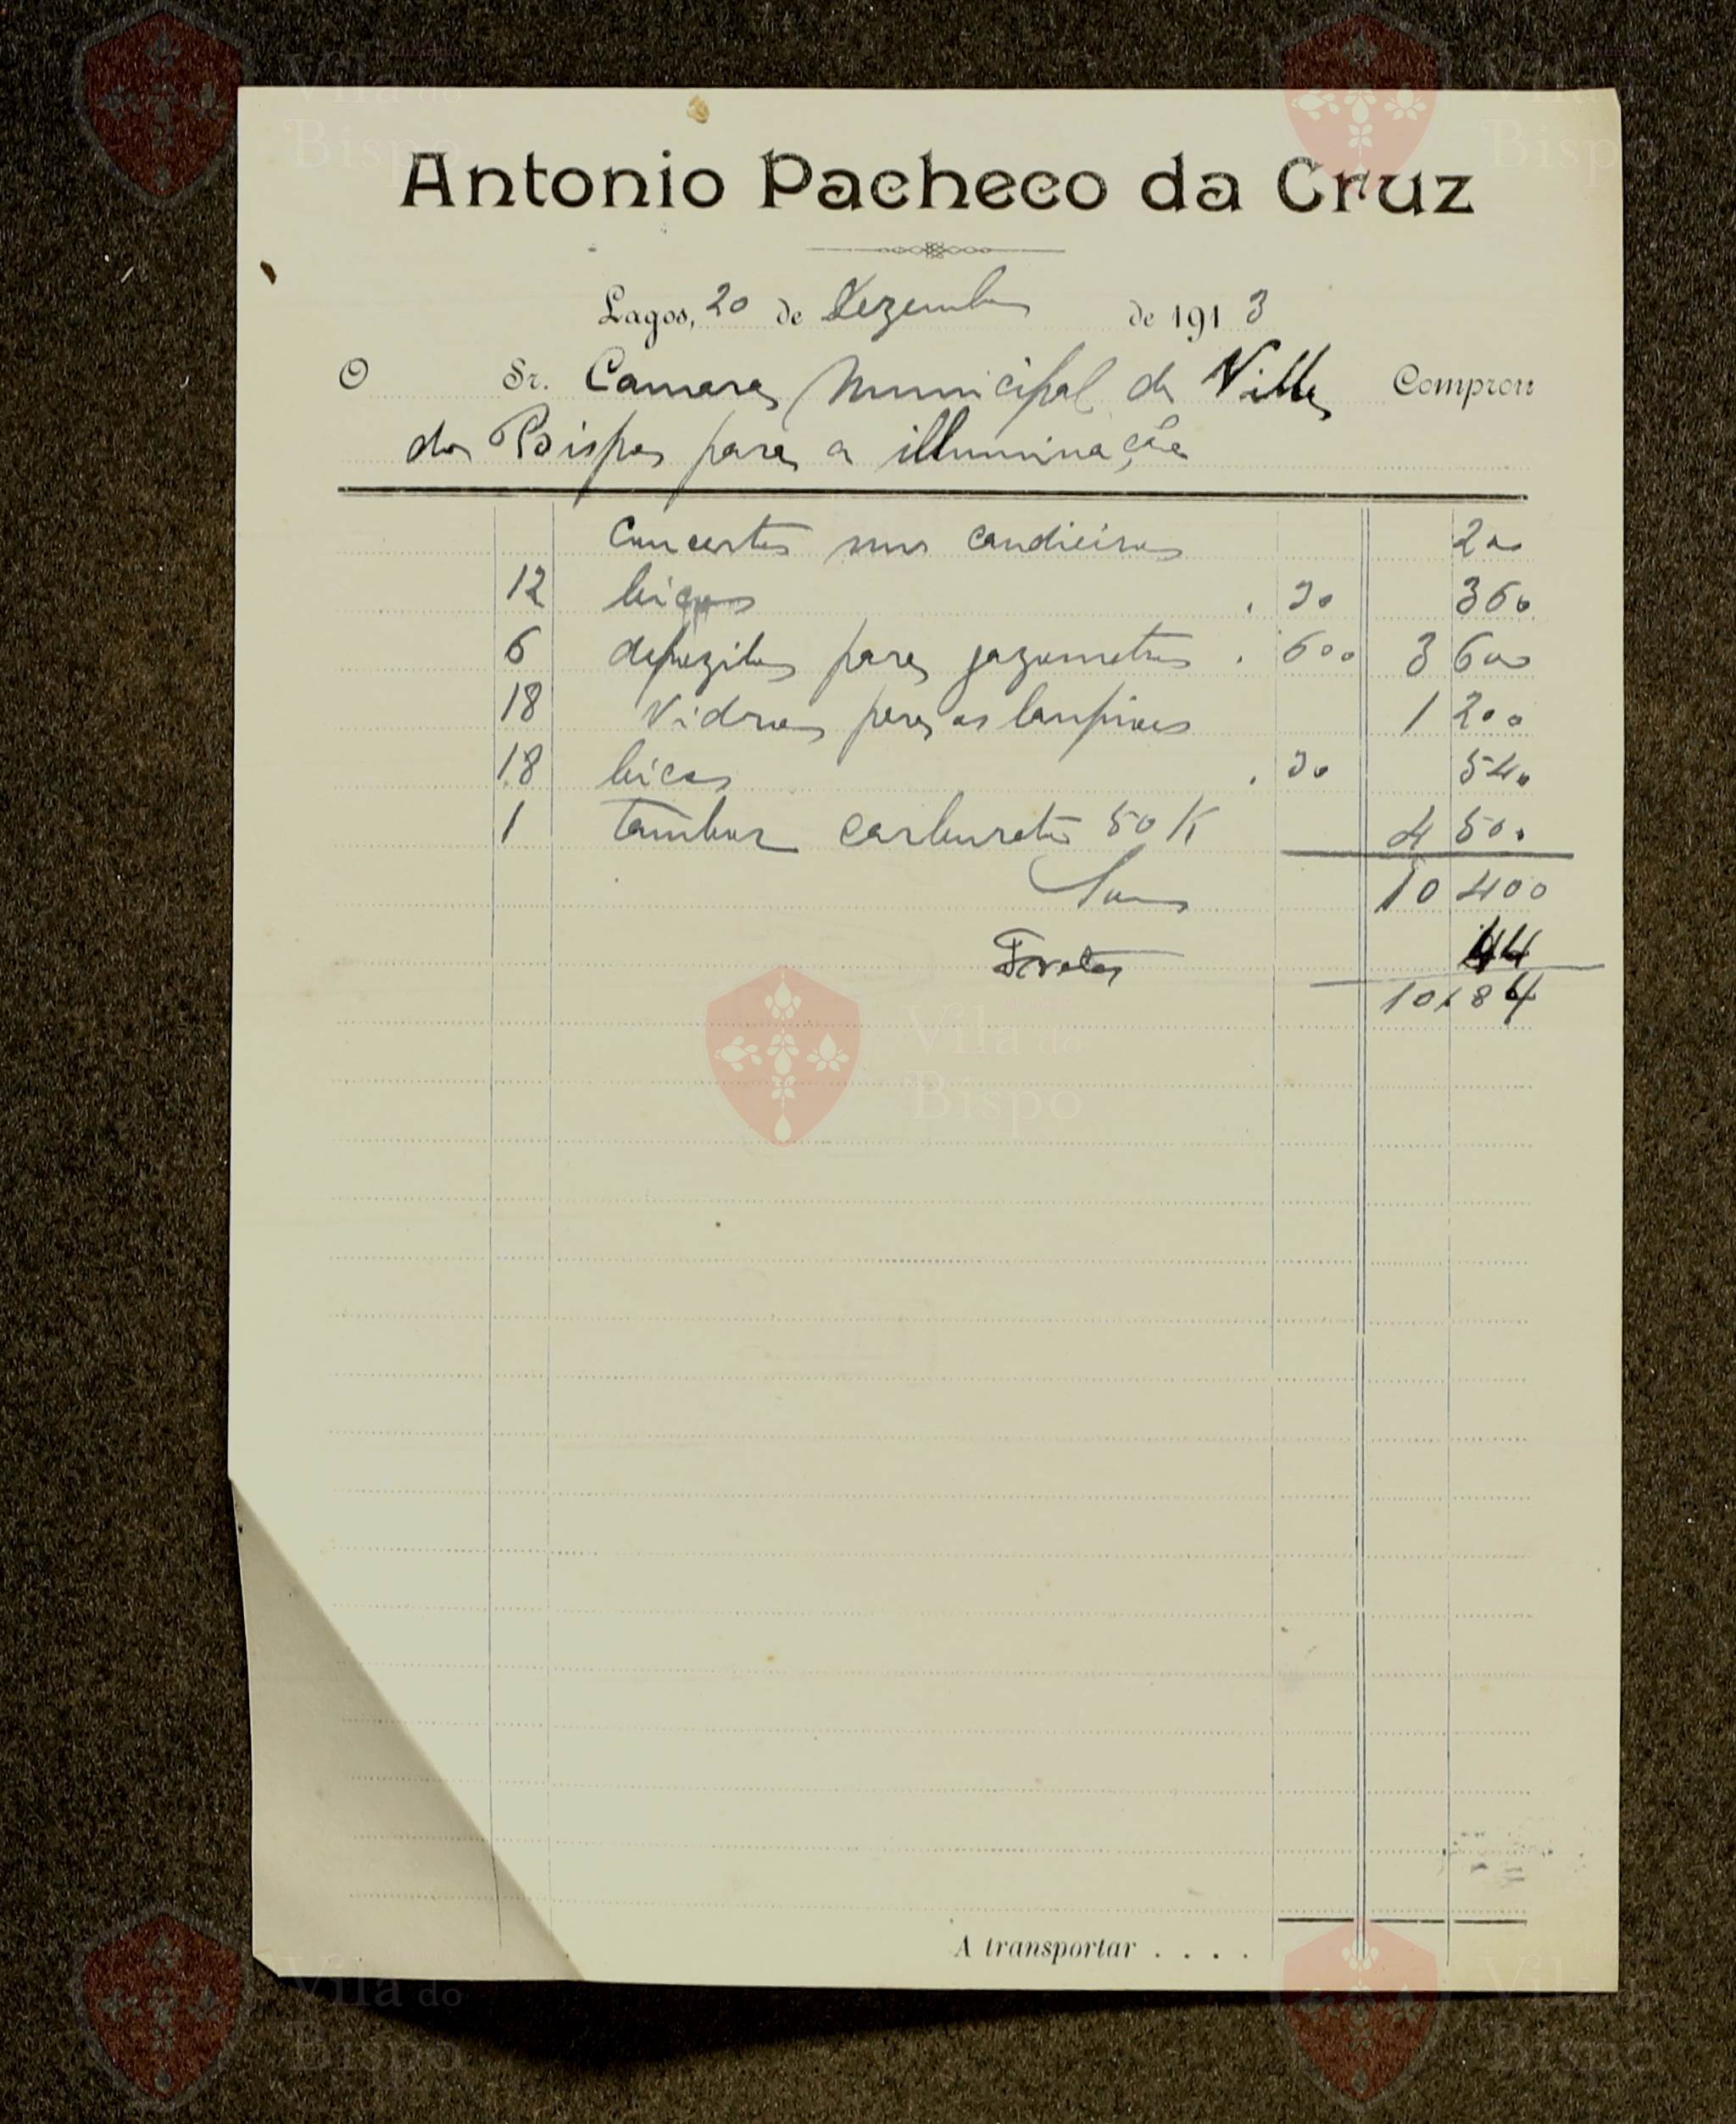 Antonio Pacheco da Cruz
Lagos, 20 de Dezembro de 1913
O Sr. Camara Municipal de Villa Comprou
do Bispo para a illuminação
Concertos nos candieiros 200
12 bicos 30 360
6 depozitos para gazometros 600 3 600
18 Vidros para os lampiões 1 200
18 bicos 30 540
1 tambor carbureto 50 K 4 500
Soma 10 400
Fretes 44
10,84
A transportar . . . .
Vila do
Bispo
Vila do
Bispo
Vila do
Bispo
Vila do
Bispo
Vila do
Bispo